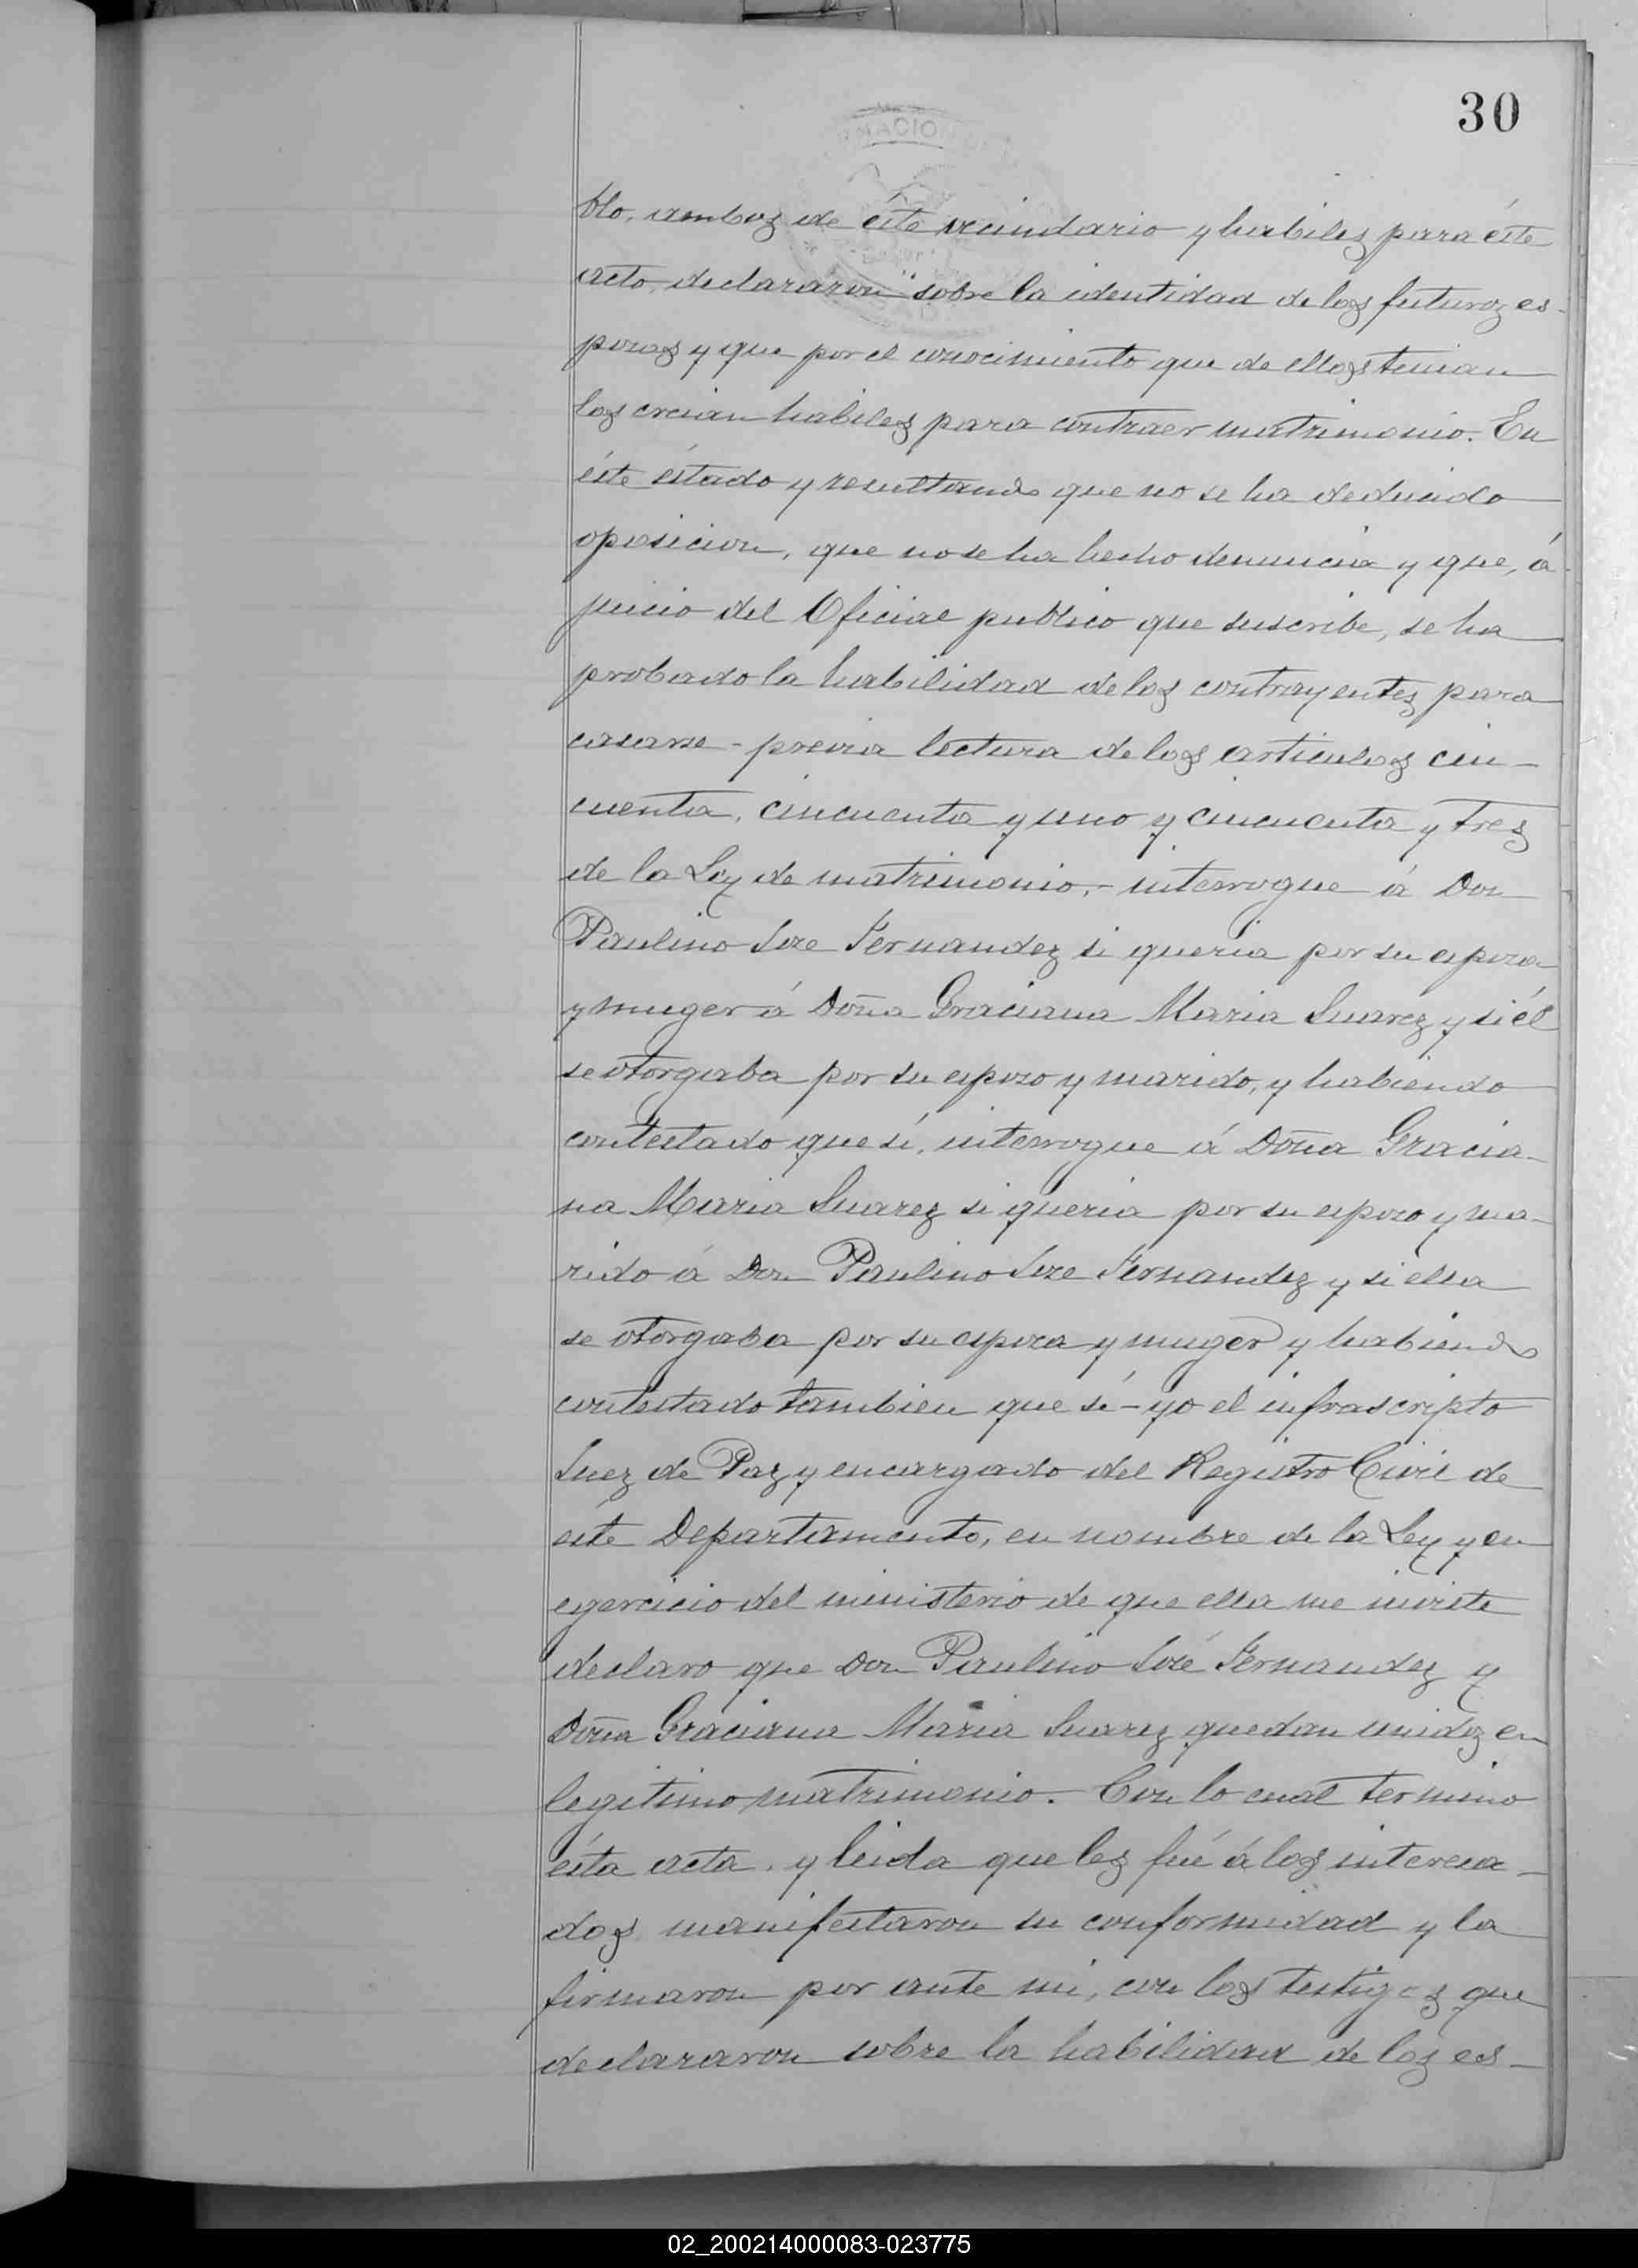 30
NACION
blo, ambos de éste vecindario y habiles para éste
acto, declararon sobre la identidad de los futuros es-
posos y que por el conocimiento que de ellos tenian
los creian habiles para contraer matrimonio. En
éste éstado y resultando que no se ha deducido
oposicion, que no se ha hecho denuncia y que, á
juicio del Oficial publico que suscribe, se ha
probado la habilidad de los contrayentes para
casarse - previa lectura de los articulos cin-
cuenta, cincuenta y uno y cincuenta y tres
de la Ley de matrimonio, - interrogue á Don
Paulino Jose Fernandez si queria por su esposa
y muger á Doña Graciana Maria Suarez y si él
se otorgaba por su esposo y marido, y habiendo
contestado que sí, interrogue á Doña Gracia-
na Maria Suarez si queria por su esposo y ma-
rido á Don Paulino Jose Fernandez y si ella
se otorgaba por su esposa y muger y habiendo
contestado tambien que sí - yo el infrascripto
Juez de Paz y encargado del Registro Civil de
éste Departamento, en nombre de la Ley y en
egercicio del ministerio de que ella me inviste
declaro que Don Paulino José Fernandez y
Doña Graciana Maria Suarez quedan unidos en
legitimo matrimonio. Con lo cual termino
ésta acta, y leida que les fué á los interesa-
dos manifestaron su conformidad y la
firmaron por ante mi, con los testigos que
declararon sobre la habilidad de los es-
02_200214000083-023775